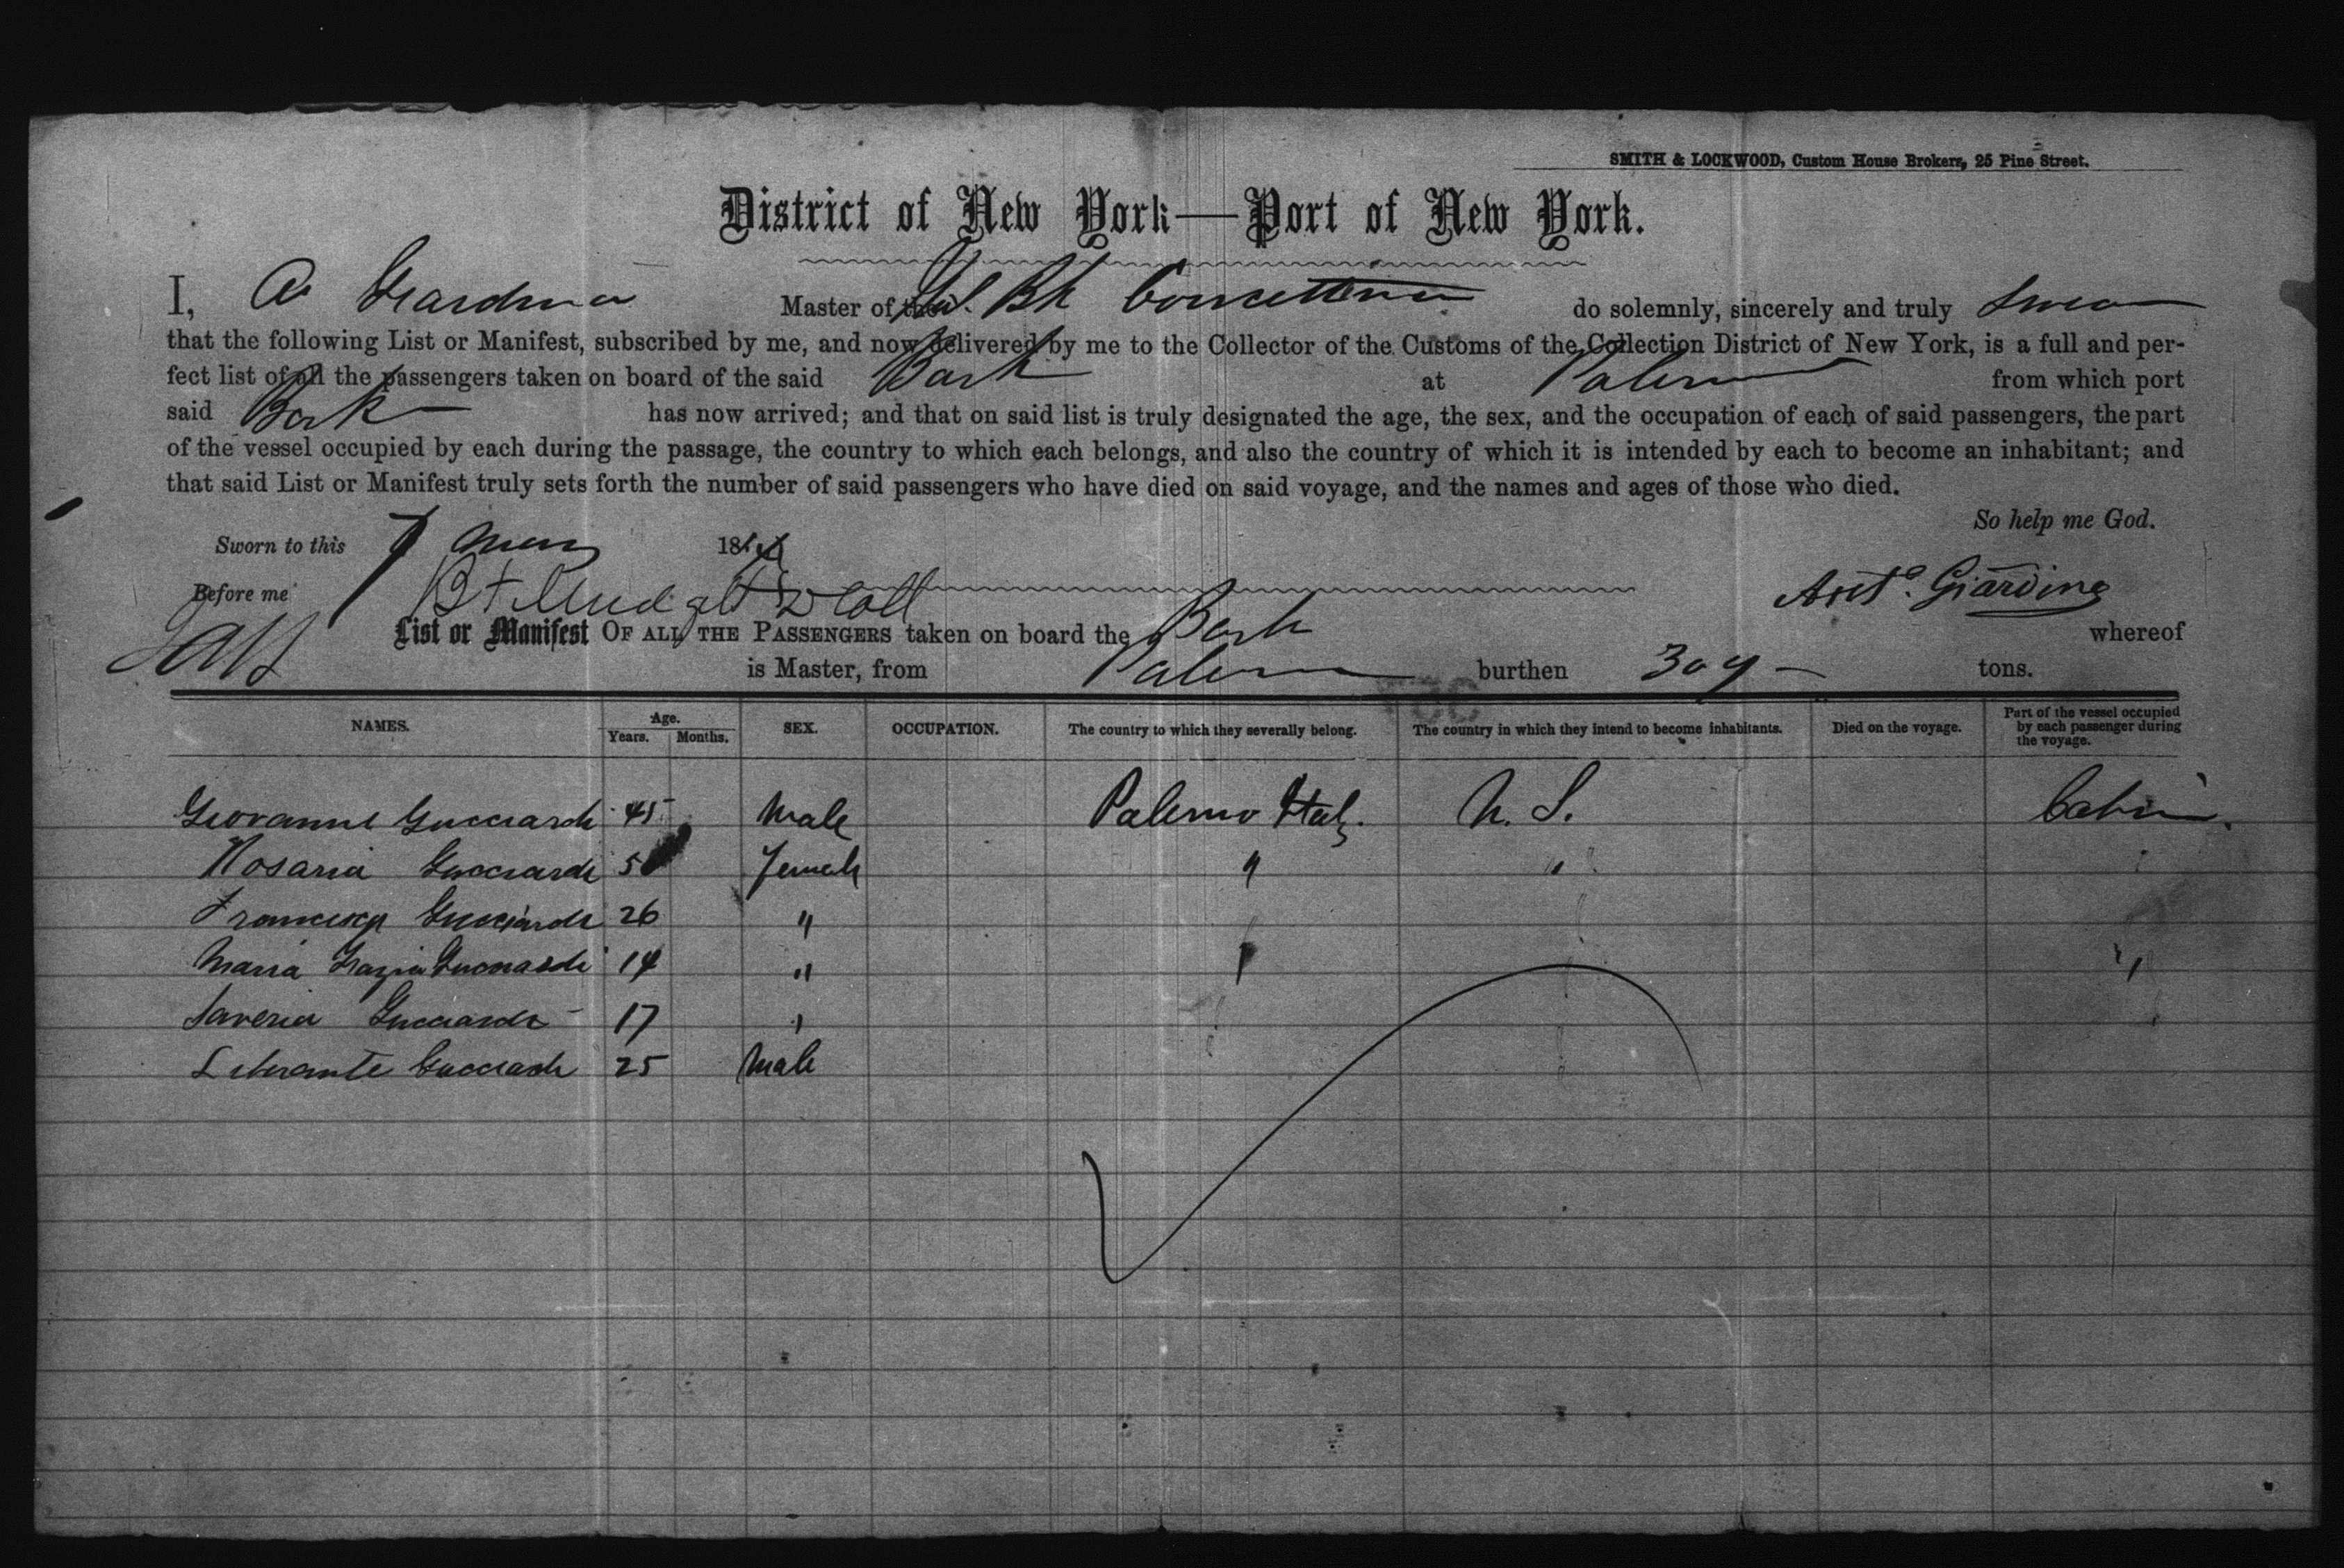 SMITH & LOCKWOOD, Custom House Brokers, 25 Pine Street.
District of New York—Port of New York.
I, A Giardina Master of the Bk Concettina do solemnly, sincerely and truly swear
that the following List or Manifest, subscribed by me, and now delivered by me to the Collector of the Customs of the Collection District of New York, is a full and per-
fect list of all the passengers taken on board of the said Bark at Palermo from which port
said Bark has now arrived; and that on said list is truly designated the age, the sex, and the occupation of each of said passengers, the part
of the vessel occupied by each during the passage, the country to which each belongs, and also the country of which it is intended by each to become an inhabitant; and
that said List or Manifest truly sets forth the number of said passengers who have died on said voyage, and the names and ages of those who died.
So help me God.
Sworn to this 7 May 18
Before me Ant.º Giardina
List or Manifest OF ALL THE PASSENGERS taken on board the Bark whereof
is Master, from Palermo burthen 309 tons.
NAMES. Age. Years. Months. SEX. OCCUPATION. The country to which they severally belong. The country in which they intend to become inhabitants. Died on the voyage. Part of the vessel occupied by each passenger during the voyage.
Giovanni Gucciardi 45 Male Palermo Italy. U. S. Cabin.
Rosaria Gucciardi 50 Female " "
Francesca Gucciardi 26 "
Maria Grazia Gucciardi 14 " " "
Saveria Gucciardi 17 "
Liberante Gucciardi 25 Male